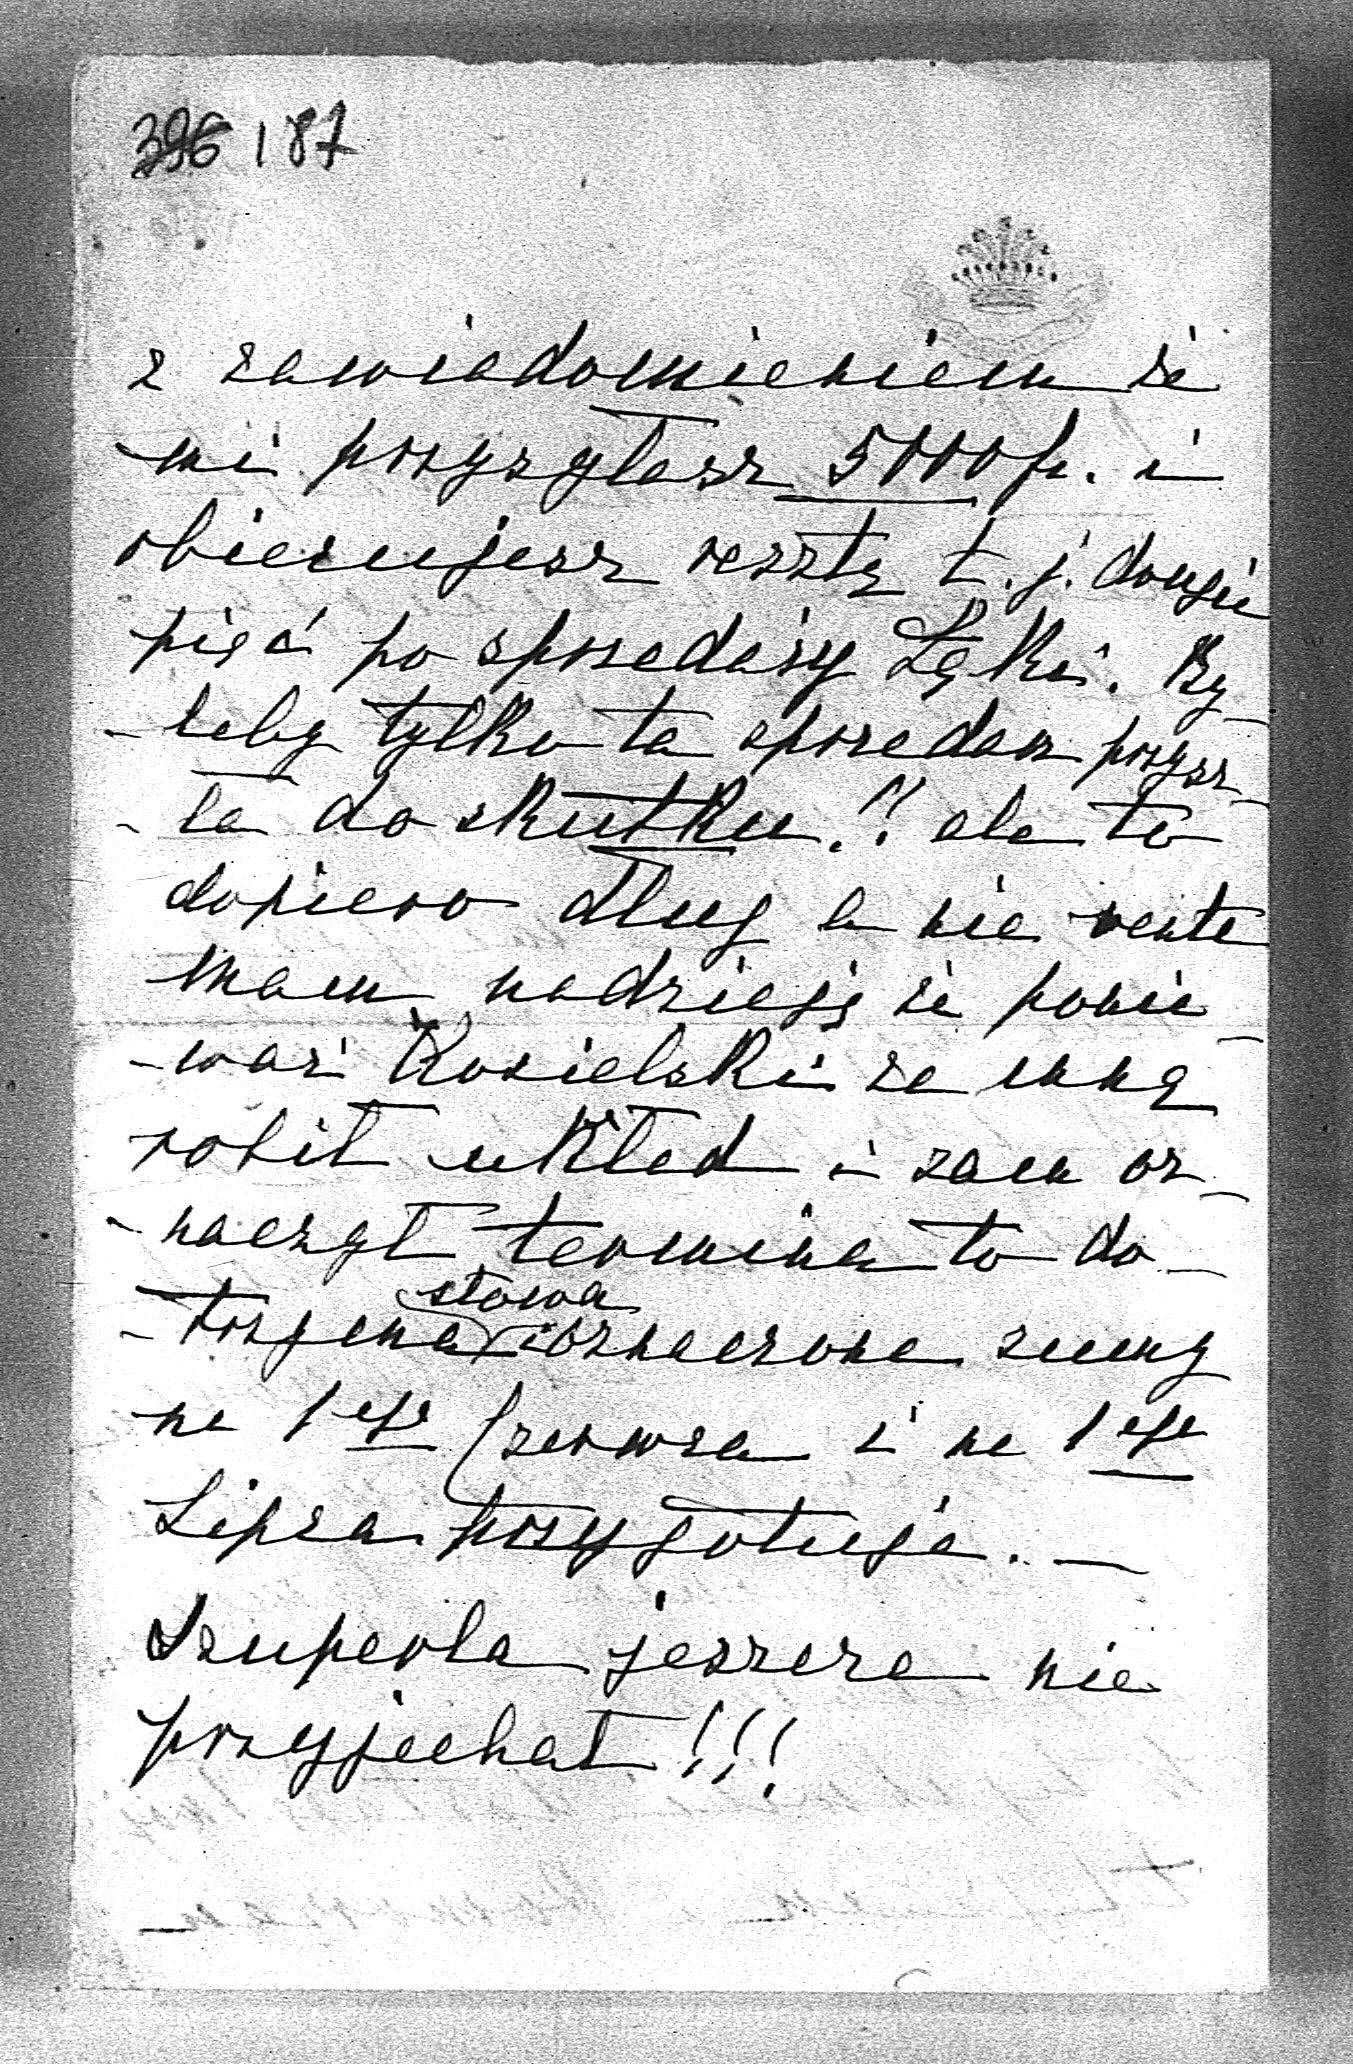 396 187
z zawiadomieniem że
mi przyszłasz 5000 fr. i
obiecujesz resztę t. j. drugie
pięć po sprzedaży Łąki. By
-leby tylko ta sprzedaż przysz
-ła do skutku!! ale to
dopiero dług a nie renta
mam nadzieję że ponie
-waż Kosielski ze mną
robił układ i sam oz
-naczył termina to do
-trzyma słowa i oznaczone sumy
na 1ego Czerwca i na 1ego
Lipca przygotuje. —
Szuperla jeszcze nie
przyjechał!!!